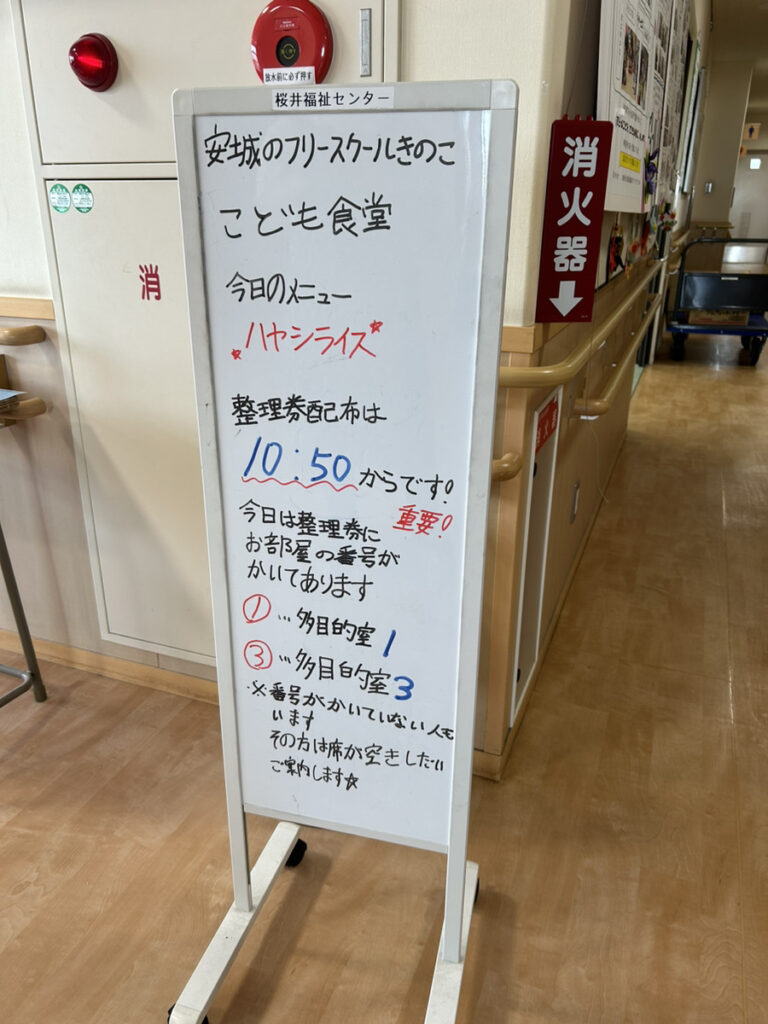 放水前に必ず押す
桜井福祉センター
安城のフリースクールきのこ
こども食堂
今日のメニュー
ハヤシライス
整理券配布は
10:50からです!
重要!
今日は整理券に
お部屋の番号が
かいてあります
①…多目的室1
③…多目的室3
※番号がかいていない人も
います
その方は席が空きしだい
ご案内します☆
消
消火器